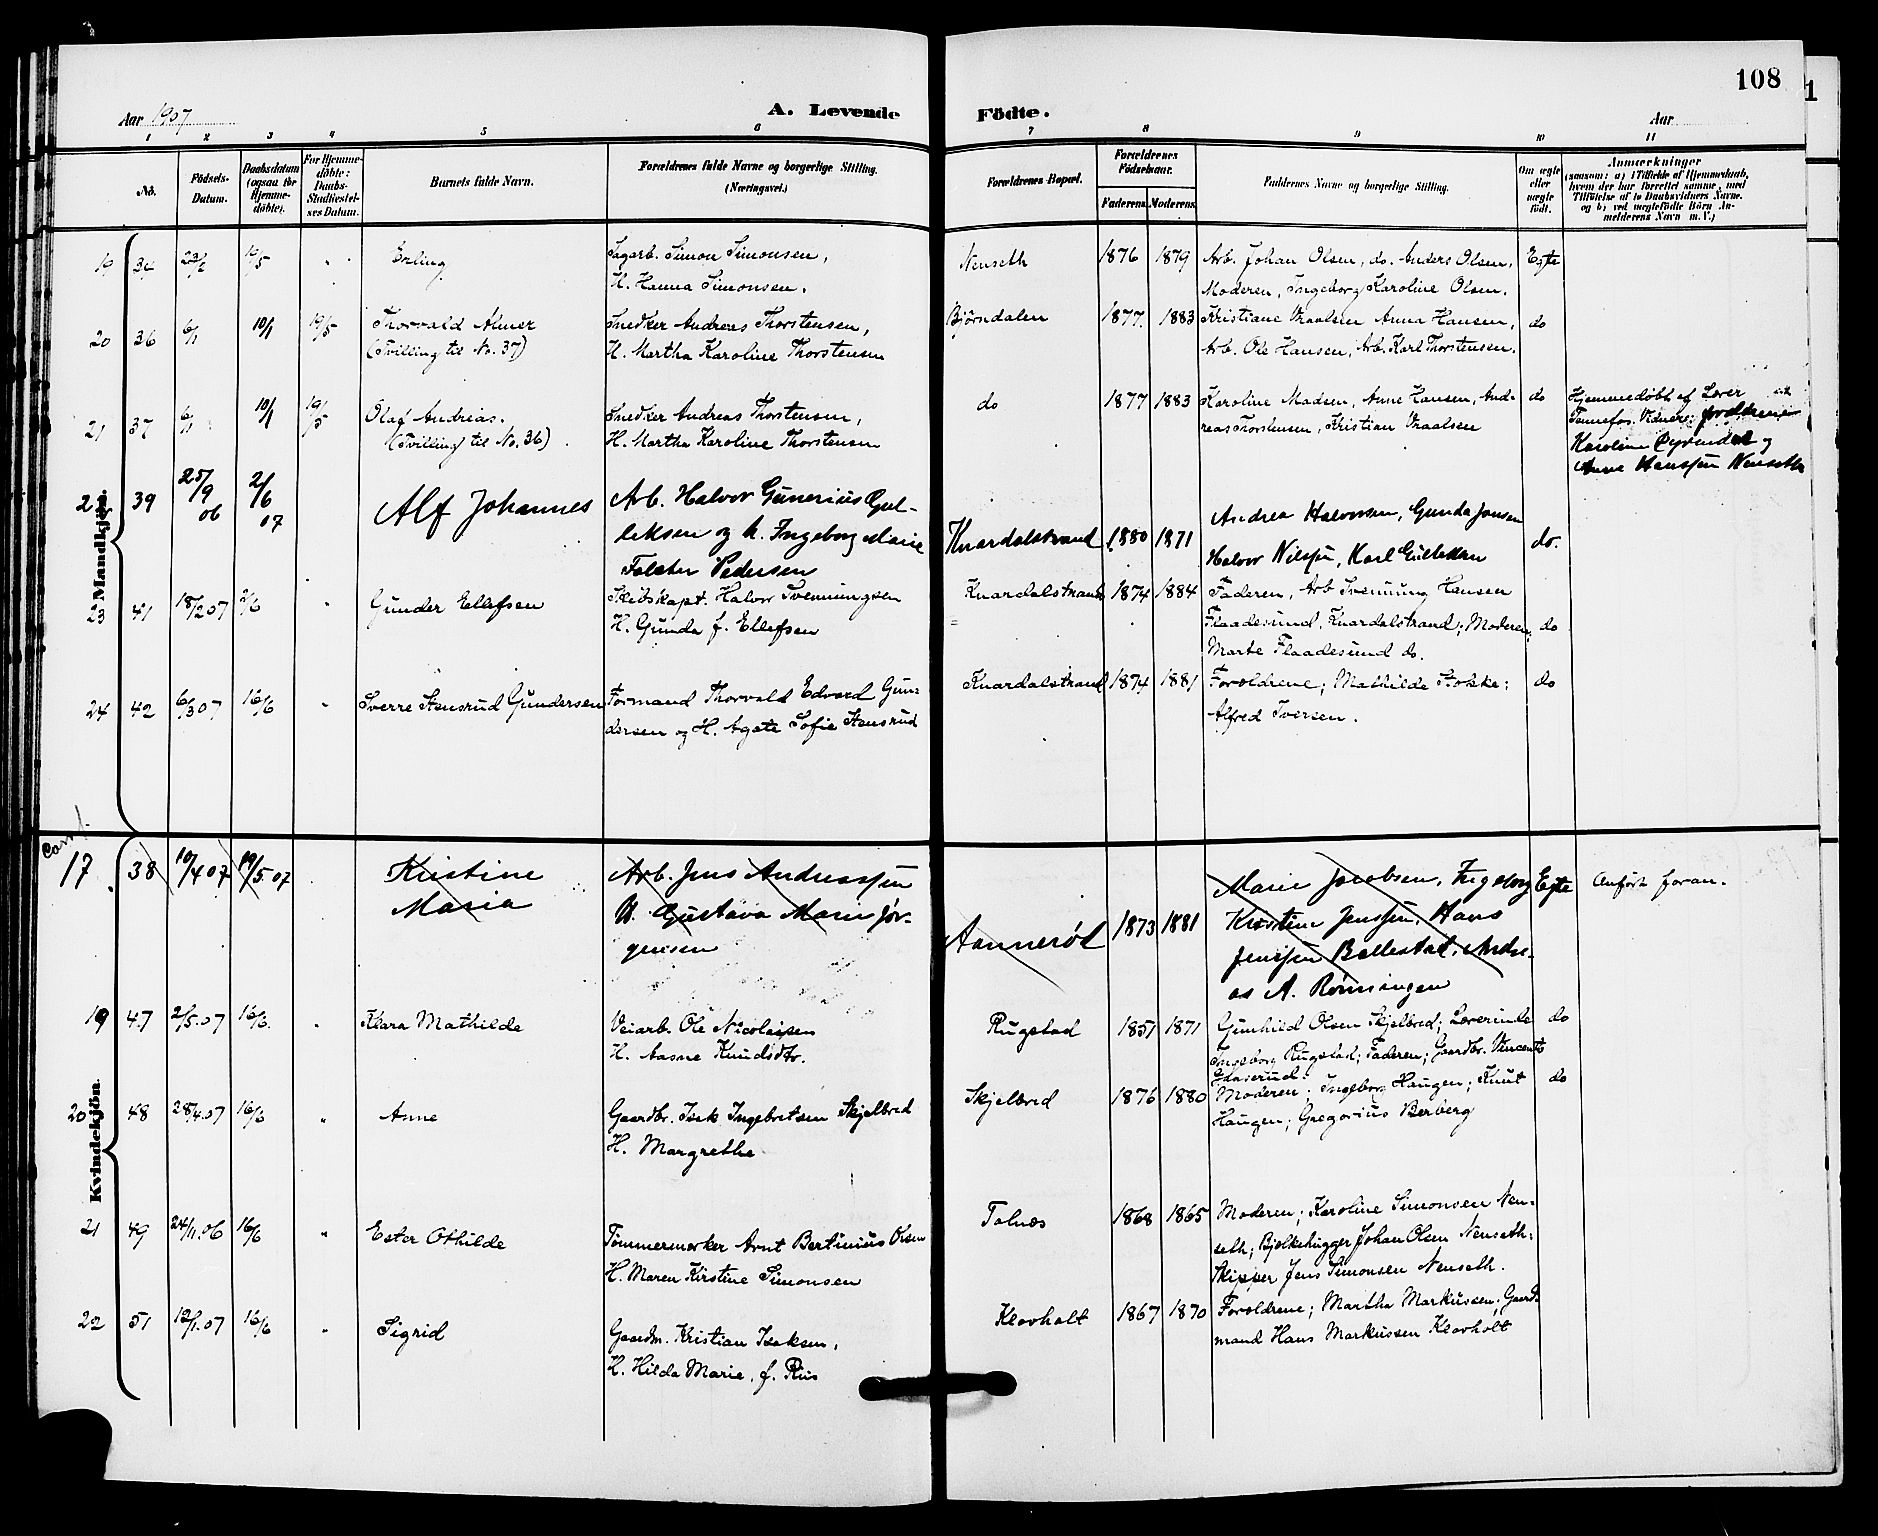 108
Aar 1907
A. Levende
Födte.
Aar
1 2 3 4 5 6 7 8 9 10 11
No.
Födsels-
Datum.
Daabsdatum
(ogsaa for
Hjemme-
döbte).
For Hjemme-
döbte:
Daabs-
Stadfæstel-
ses Datum.
Barnets fulde Navn.
Forældrenes fulde Navne og borgerlige Stilling.
(Næringsvei.)
Forældrenes Bopæl.
Forældrenes
Födselsaar.
Faderens. Moderens.
Faddernes Navne og borgerlige Stilling.
Om ægte
eller
uægte
født.
Anmærkninger
(saasom: a) i Tilfælde af Hjemmedaab,
hvem der har forrettet samme, med
Tilföielse af to Daabsvidners Navne.
og b) ved uægtefödte Börn An-
melderens Navn m. V.)
Mandkjön.
19 34 23/2 19/5 " Erling
Sagarb. Simon Simonsen,
H. Hanna Simonsen.
Nenseth 1876 1879
Arb. Johan Olsen, do. Anders Olsen,
Moderen, Ingeborg Karoline Olsen.
Egte
20 36 6/1 10/1 19/5 Thorvald Almer
(Tvilling til No. 37)
Snedker Andreas Thorstensen,
H. Martha Karoline Thorstensen
Björndalen 1877. 1883
Kristiane Vraalsen Anna Hansen,
Arb. Ole Hansen, Arb. Karl Thorstensen.
do
21 37 6/1 10/1 19/5 Olaf Andreas.
(Tvilling til No. 36)
Snedker Andreas Thorstensen,
H. Martha Karoline Thorstensen
do 1877 1883
Karoline Madsen, Anne Hansen, And-
reas Thorstensen, Kristian Vraalsen
do
Hjemmedøbt af Lærer
Tannefos. Vidner: forældrene
Karoline
Anne Hanssen Nenseth
22 39 25/9 06 2/6 07 Alf Johannes
Arb. Halvor Gunerius Gul-
leksen og H. Ingeborg Marie
Falster Pedersen
Knardalstrand 1880 1871
Andrea Halvorsen, Gunda Jonsen
Halvor Nilssen, Karl Gulleksen
do.
23 41 18/2 07 2/6 " Gunder Ellefsen
Skibskapt. Halvor Svenningsen
H. Gunda f. Ellefsen
Knardalstrand 1874 1884
Faderen, Arb Svenning Hansen
Flaadesund, Knardalstrand; Moderen;
Marte Flaadesund do.
do
24 42 6/3 07 16/6 " Sverre Stensrud Gundersen
Formand Thorvald Edvard Gun-
dersen og H. Agate Sofie Stensrud
Knardalstrand 1874 1881
Forældrene; Mathilde Stokke;
Alfred Iversen.
do
Kvindekjön.
17 38 10/4 07 19/5 07 Kristine
Maria
Arb. Jens Andreassen
H. Gustava Marie Jør-
gensen
Aannerød 1873 1881
Marie Jacobsen, Ingeborg
Kristine Jenssen, Hans
Jenssen Ballestad, Andre-
as A. Rønningen
Egte
Anført foran.
19 47 2/5.07 16/6. " Klara Mathilde
Veiarb. Ole Nicolaisen
H. Aasne Knudsdtr.
Rugstad 1851 1871
Gunhild Olsen Skjelbred; Lærerinde
Ingeborg Rugstad; Faderen; Gaardbr. Vincents
do
20 48 28/4.07 16/6 " Anne
Gaardbr. Isak Ingebretsen Skjelbred
H. Margrethe
Skjelbred 1876 1880
Moderen; Ingeborg Haugen; Knut
Haugen; Gregorius Berberg
do
21 49 24/11.06 16/6 " Ester Othilde
Tømmermerker Arnt Bertinius Olsen
H. Maren Kirstine Simonsen
Tolnæs 1868 1865
Moderen; Karoline Simonsen Nen-
seth; Bjelkehugger Johan Olsen Nenseth.
Skipper Jens Simonsen Nenseth.
22 51 12/1.07 16/6 " Sigrid
Gaardm. Kristian Isaksen,
H. Hilda Marie, f. Riis
Klovholt 1867 1870
Forældrene; Martha Markussen; Gaard-
mand Hans Markussen Klovholt